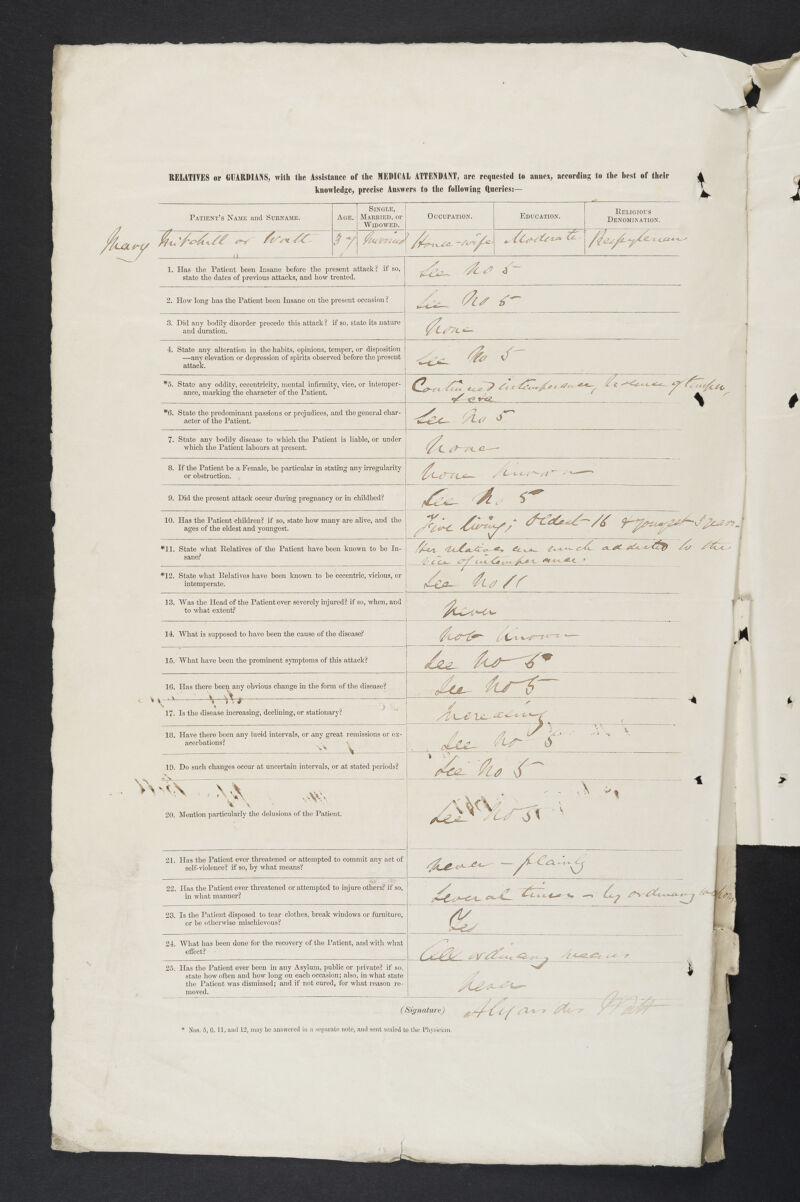 RELATIVES or GUARDIANS, with the Assistance of the MEDICAL ATTENDANT, are requested to annex, according to the best of their
knowledge, precise Answers to the following Queries:—
PATIENT'S NAME and SURNAME. AGE. SINGLE, MARRIED, or WIDOWED. OCCUPATION. EDUCATION. RELIGIOUS DENOMINATION.
Mary Mitchell or Watt 37 Married House-wife Moderate Presbyterian
1. Has the Patient been Insane before the present attack? if so, See No 5
state the dates of previous attacks, and how treated.
2. How long has the Patient been Insane on the present occasion? See No 5
3. Did any bodily disorder precede this attack? if so, state its nature None
and duration.
4. State any alteration in the habits, opinions, temper, or disposition
—any elevation or depression of spirits observed before the present See No 5
attack.
*5. State any oddity, eccentricity, mental infirmity, vice, or intemper- Continued intemperance, Violence of temper,
ance, marking the character of the Patient.
*6. State the predominant passions or prejudices, and the general char- See No 5
acter of the Patient.
7. State any bodily disease to which the Patient is liable, or under None
which the Patient labours at present.
8. If the Patient be a Female, be particular in stating any irregularity None Known
or obstruction.
9. Did the present attack occur during pregnancy or in childbed? See No 5
10. Has the Patient children? if so, state how many are alive, and the Five living; Oldest 16 & youngest 3 years
ages of the eldest and youngest.
*11. State what Relatives of the Patient have been known to be In- Her relatives are much addicted to the
sane? vice of intemperance.
*12. State what Relatives have been known to be eccentric, vicious, or See No 11
intemperate.
13. Was the Head of the Patient ever severely injured? if so, when, and Never
to what extent?
14. What is supposed to have been the cause of the disease? Not Known
15. What have been the prominent symptoms of this attack? See No 5
16. Has there been any obvious change in the form of the disease? See No 5
17. Is the disease increasing, declining, or stationary? Increasing
18. Have there been any lucid intervals, or any great remissions or ex- See No 5
acerbations?
19. Do such changes occur at uncertain intervals, or at stated periods? See No 5
20. Mention particularly the delusions of the Patient. See No 5
21. Has the Patient ever threatened or attempted to commit any act of Never – plainly
self-violence? if so, by what means?
22. Has the Patient ever threatened or attempted to injure others? if so, Several times – by ordinary
in what manner?
23. Is the Patient disposed to tear clothes, break windows or furniture, Yes
or be otherwise mischievous?
24. What has been done for the recovery of the Patient, and with what All ordinary means
effect?
25. Has the Patient ever been in any Asylum, public or private? if so,
state how often and how long on each occasion; also, in what state Never
the Patient was dismissed; and if not cured, for what reason re-
moved.
(Signature) Alexander Watt
* Nos. 5, 6, 11, and 12, may be answered in a separate note, and sent sealed to the Physician.